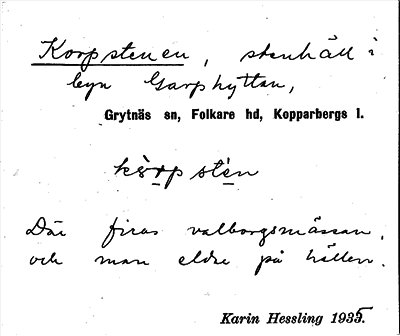 Korpstenen, stenhäll i
byn Garphyttan,
Grytnäs sn, Folkare hd, Kopparbergs l.
kòrpstén
Där firas valborgsmässan,
och man eldar på hällen.
Karin Hessling 1935.